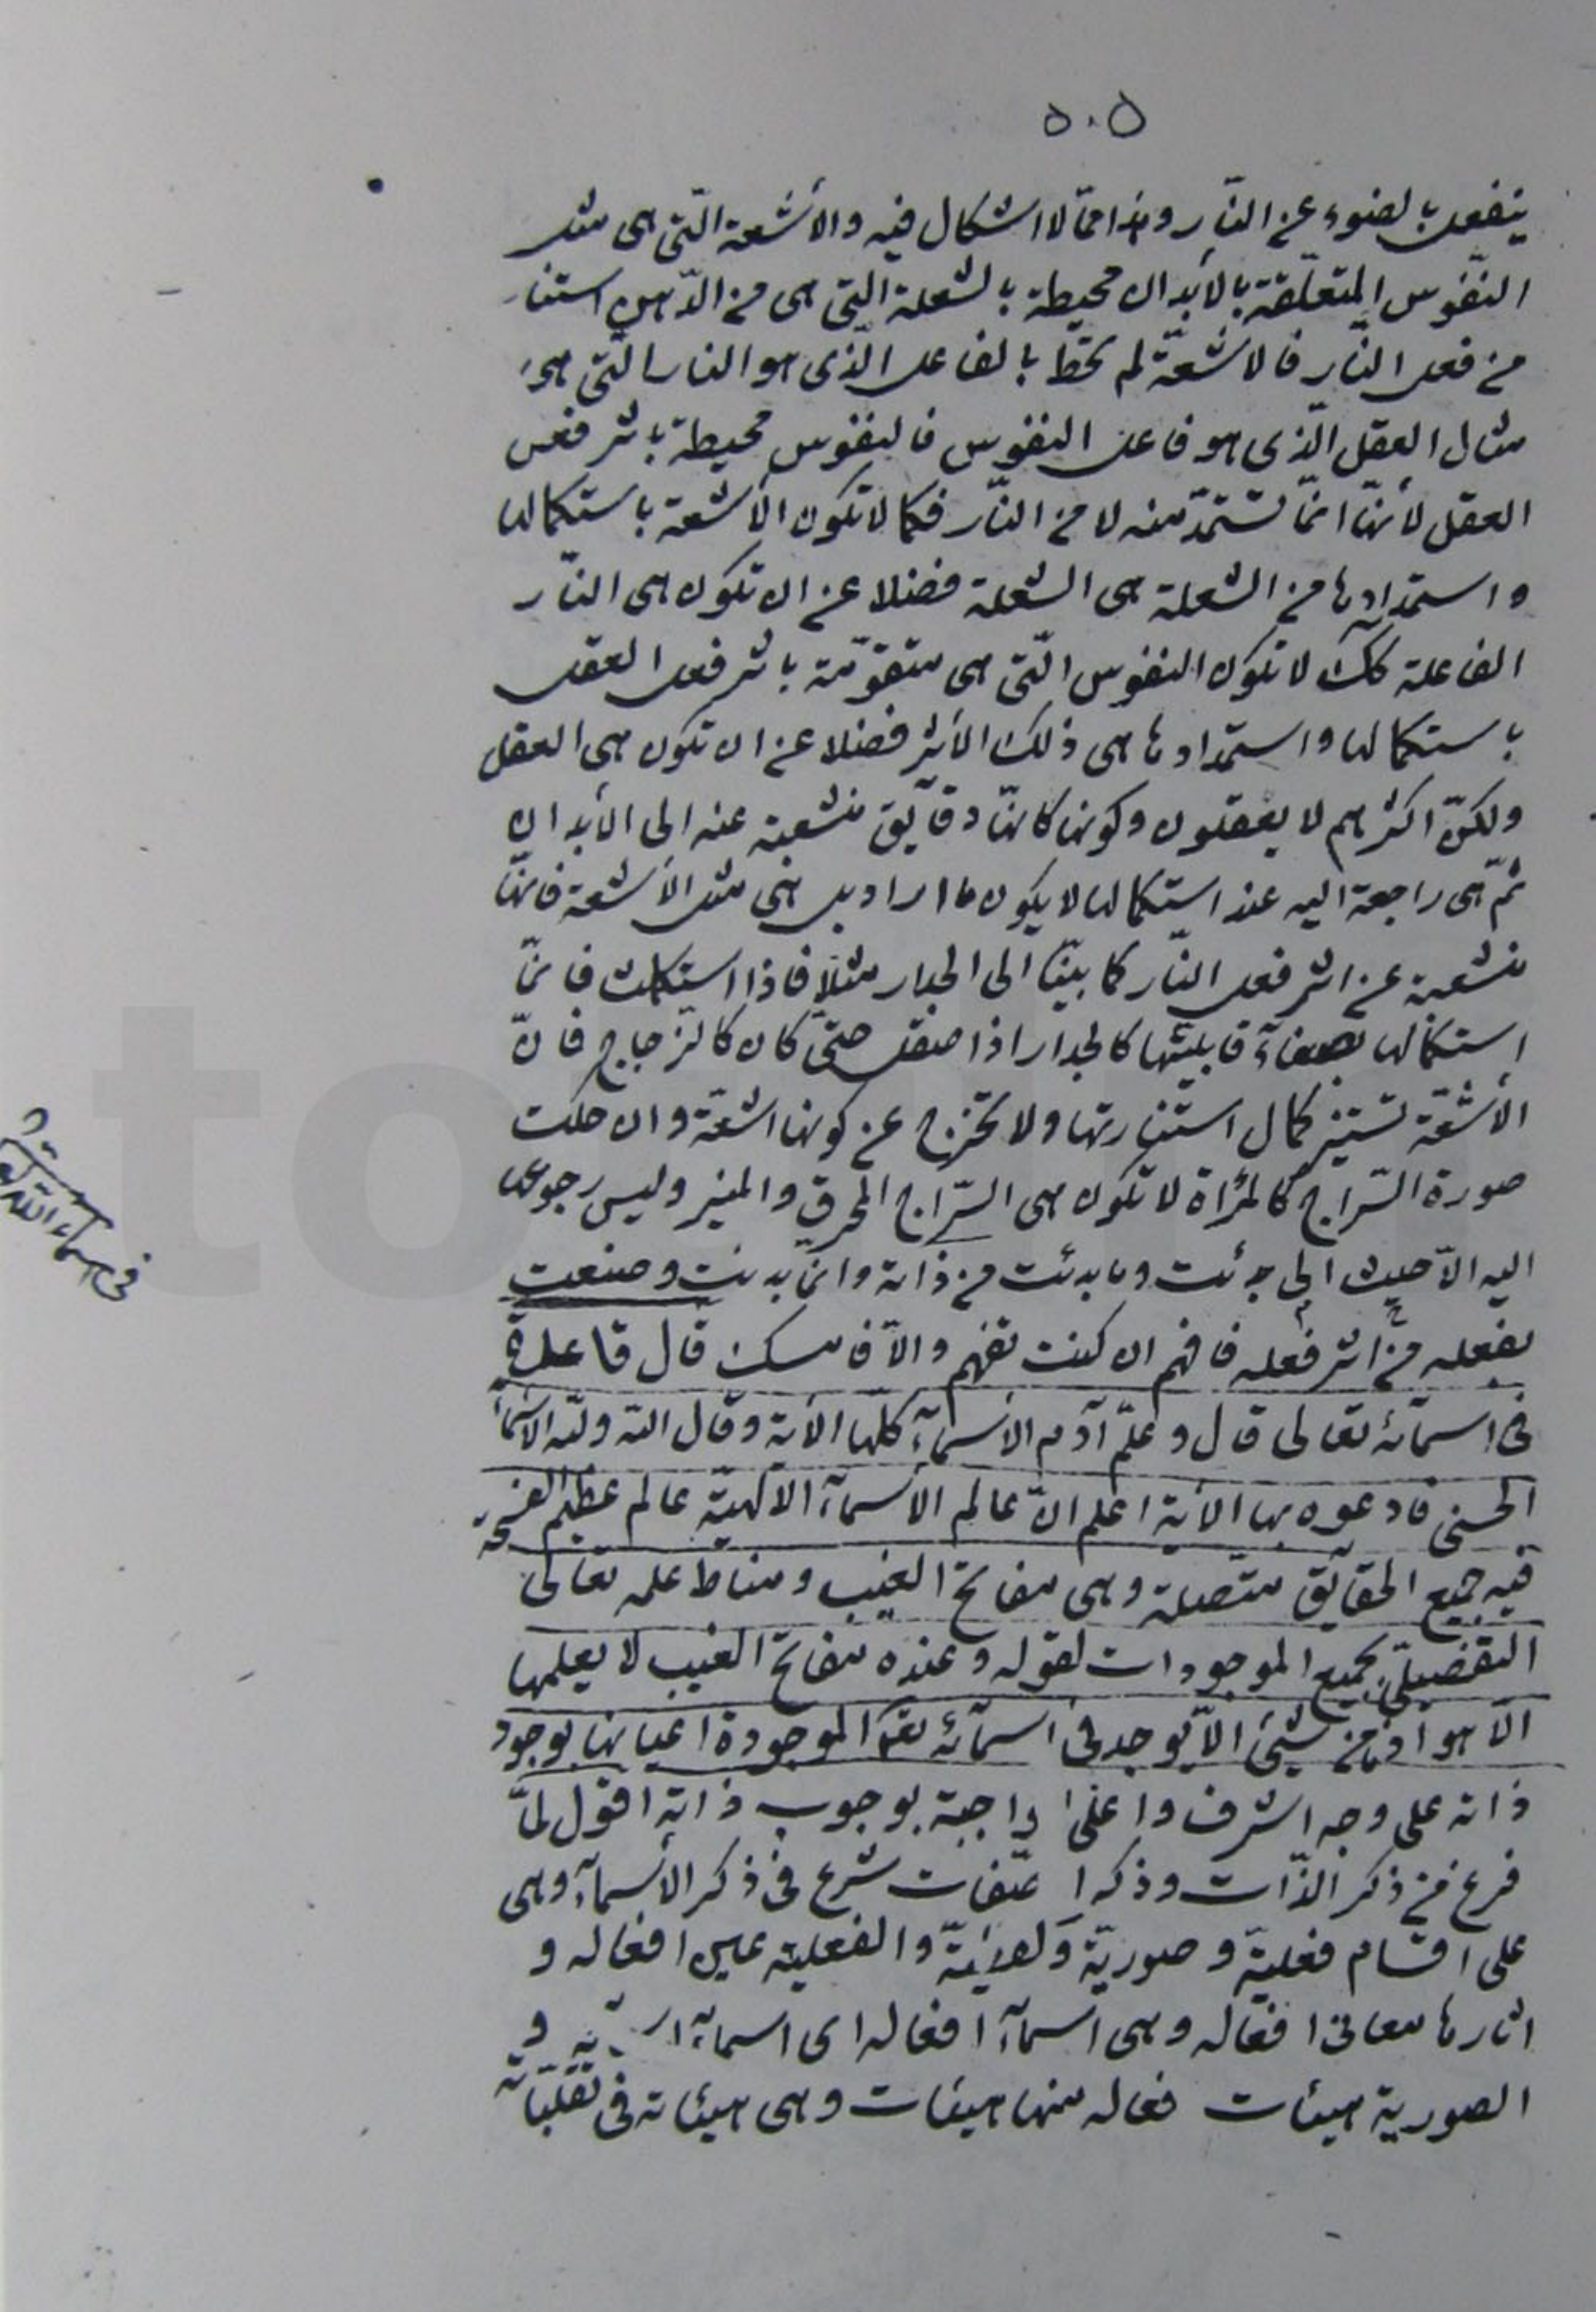 ٥٠٥
ينفعل بالضوء عن النّار وهذا ممّا لا اشكال فيه والأشعة الّتى هى مثل
النّفوس المتعلّقة بالأبدان محيطة بالشعلة التى هى من الدّهن استنار
من فعل النّار فالاشعّة لم تحط بالفاعل الّذى هو النار الّتى هى
مثال العقل الّذى هو فاعل النفوس فالنفوس محيطة باثر فعل
العقل لأنّها انّما تستمدّ منه لا من النّار فكما لا تكون الأشعة باستكمالها
واستمدادها من الشعلة هى الشعلة فضلا عن ان تكون هى النّار
الفاعلة كك لا تكون النفوس الّتى هى متقوّمة باثر فعل العقل
باستكمالها واستمدادها هى ذلك الأثر فضلا عن ان تكون هى العقل
ولكنّ اكثرهم لا يعقلون وكونها كانها دقآيق منشعبة عنه الى الأبدان
ثمّ هى راجعة اليه عند استكمالها لا يكون ما اراد بل هى مثل الأشعة فانّها
منشعبة عن اثر فعل النّار كما بيّنّا الى الجدار مثلا فاذا استكملت فانّما
استكمالها بصفآء قابليّتها كالجدار اذا صقل حتّى كان كالزجاج فانّ
الأشعّة تستنير كمال استنارتها ولا تخرج عن كونها اشعّة وان حكت
صورة السّراج كالمرْاة لا تكون هى السّراج المحرق والمنير وليس رجوعها
اليه الاّ حيث الى بدئت وما بدئت من ذاته وانّما بدئت وصنعت
بفعله من اثر فعله فافهم ان كنت تفهم والاّ فامسك قال قاعدة
فى اسمآئه تعالى قال وعلّم آدم الأسمآء كلّها الأية وقال الله ولله الأسمآء
الحسنى فادعوه بها الأية اعلم انّ عالم الأسمآء الآلهيّة عالم عظيم الفسحة
فيه جميع الحقآيق متّصلة وهى مفاتح الغيب ومناط علمه تعالى
التفصيلىّ بجميع الموجودات لقوله وعنده مفاتح الغيب لا يعلمها
الاّ هو اذ ما من شئ الاّ يوجد فى اسمآئه تعا الموجودة اعيانها بوجود
ذاته على وجه اشرف واعلى واجبة بوجوب ذاته اقول لمّا
فرغ من ذكر الذّات وذكر الصّفات شرع فى ذكر الأسمآء وهى
على اقسام فعليّة وصوريّة والفعلية على افعاله و
اثارها معانى افعاله وهى اسمآء افعاله اى اسمآء و
الصورية هيئات فعاله منها هيئات وهى هيئاته فى تقلّباته
فى اسماء الله